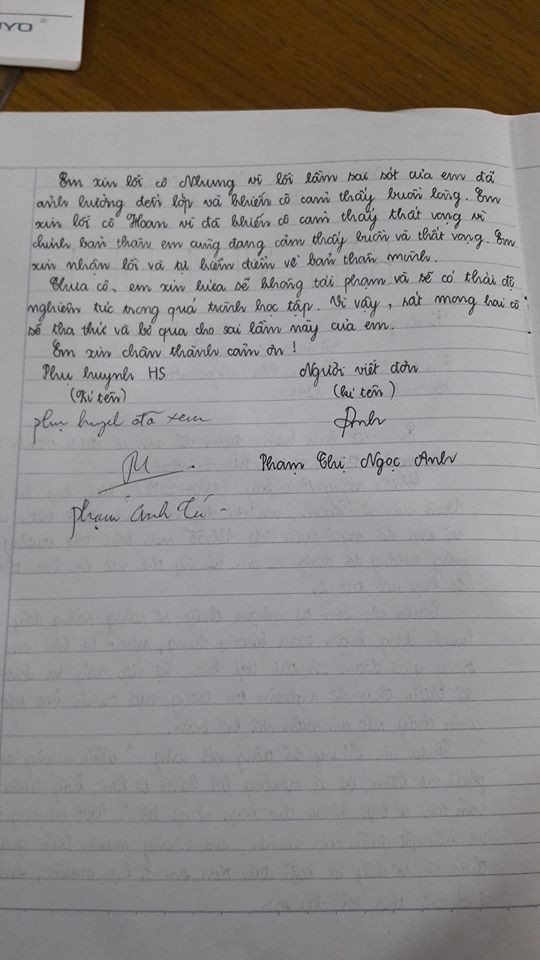 Em xin lỗi cô Nhung vì lỗi lầm sai sót của em đã
ảnh hưởng đến lớp và khiến cô cảm thấy buồn lòng. Em
xin lỗi cô Hoan vì đã khiến cô cảm thấy thất vọng vì
chính bản thân em cũng đang cảm thấy buồn và thất vọng. Em
xin nhận lỗi và tự kiểm điểm về bản thân mình.
Thưa cô, em xin hứa sẽ không tái phạm và sẽ có thái độ
nghiêm túc trong quá trình học tập. Vì vậy, rất mong hai cô
sẽ tha thứ và bỏ qua cho sai lầm này của em.
Em xin chân thành cảm ơn!
Phụ huynh HS Người viết đơn
(Kí tên) (kí tên)
phụ huynh đã xem Anh
Phạm Thị Ngọc Anh
Phạm Anh Tú